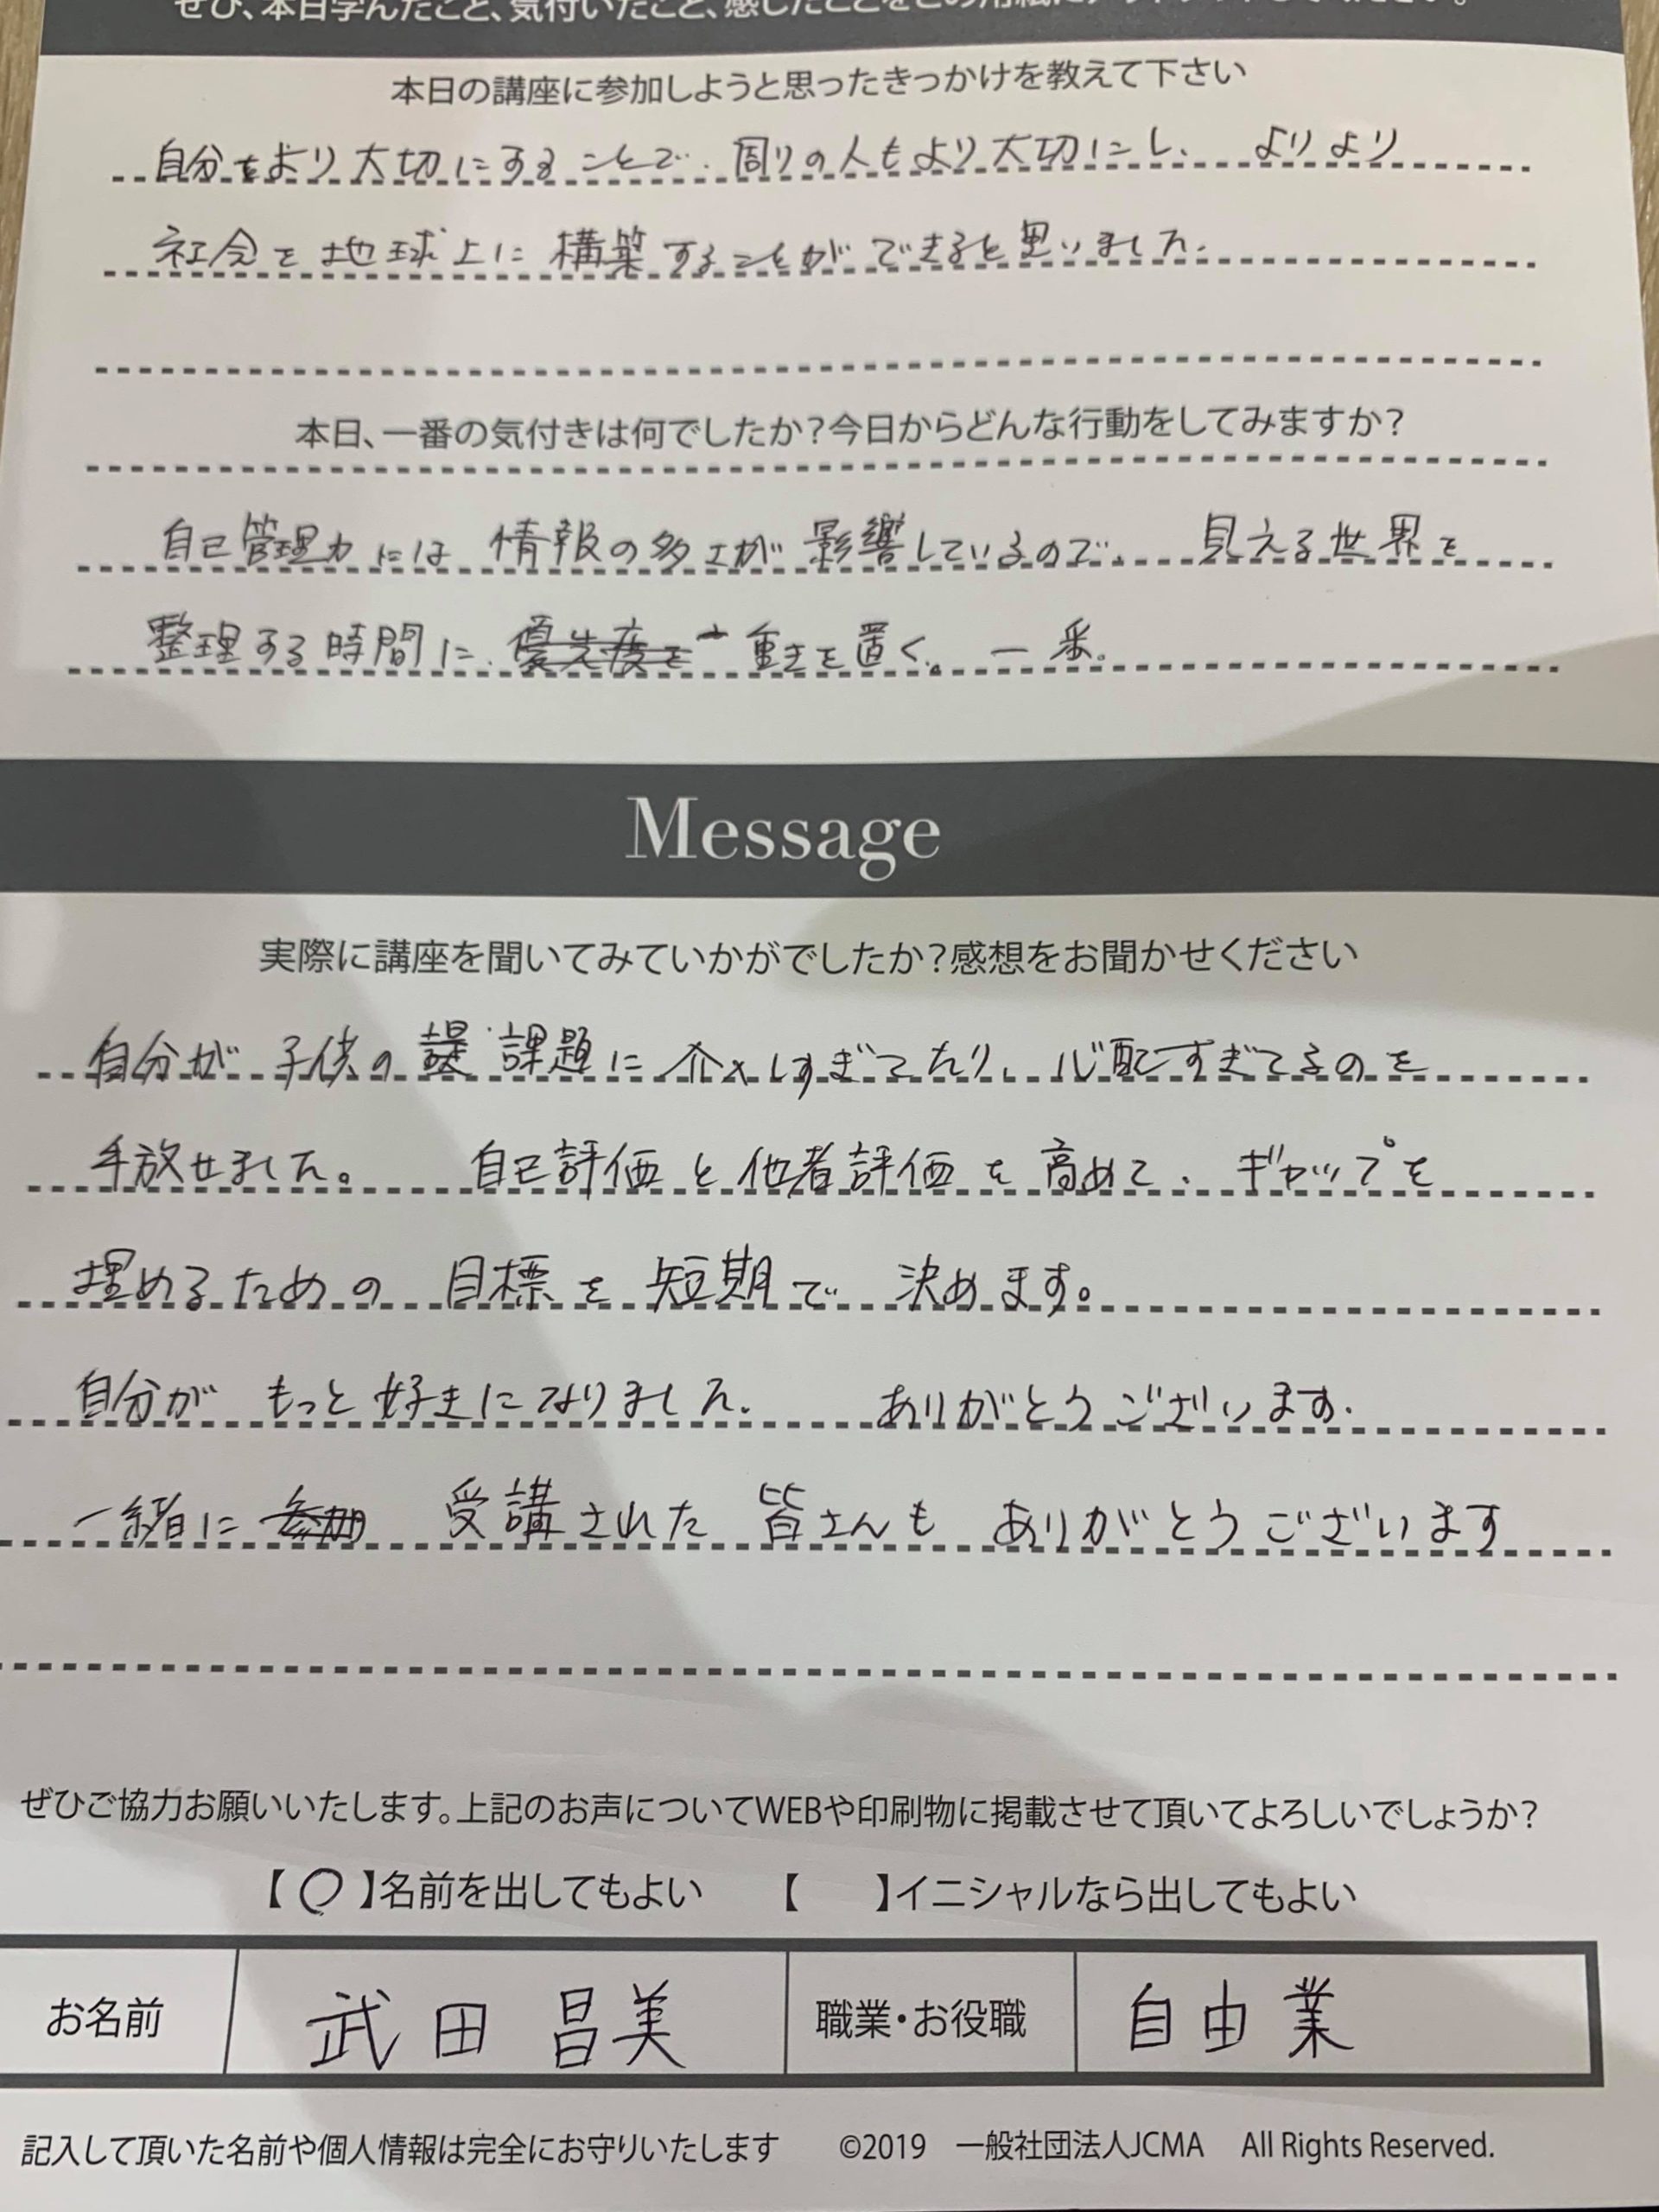 ぜひ、本日学んだこと、気付いたこと、感じたことをこの用紙にアウトプットしてください。
本日の講座に参加しようと思ったきっかけを教えて下さい
自分をより大切にすることで、周りの人もより大切にし、よりより
社会を地球上に構築することができると思いました。
本日、一番の気付きは何でしたか?今日からどんな行動をしてみますか?
自己管理力には情報の多さが影響しているので、見える世界を
整理する時間に、優先度を 重きを置く。一番。
Message
実際に講座を聞いてみていかがでしたか?感想をお聞かせください
自分が子供の課題に介入しすぎてたり、心配すぎてるのを
手放せました。 自己評価と他者評価を高めて、ギャップを
埋めるための目標を短期で決めます。
自分がもっと好きになりました。 ありがとうございます。
一緒に参加 受講された皆さんもありがとうございます
ぜひご協力お願いいたします。上記のお声についてWEBや印刷物に掲載させて頂いてよろしいでしょうか?
【○】名前を出してもよい 【 】イニシャルなら出してもよい
お名前 武田 昌美 職業・お役職 自由業
記入して頂いた名前や個人情報は完全にお守りいたします ©2019 一般社団法人JCMA All Rights Reserved.